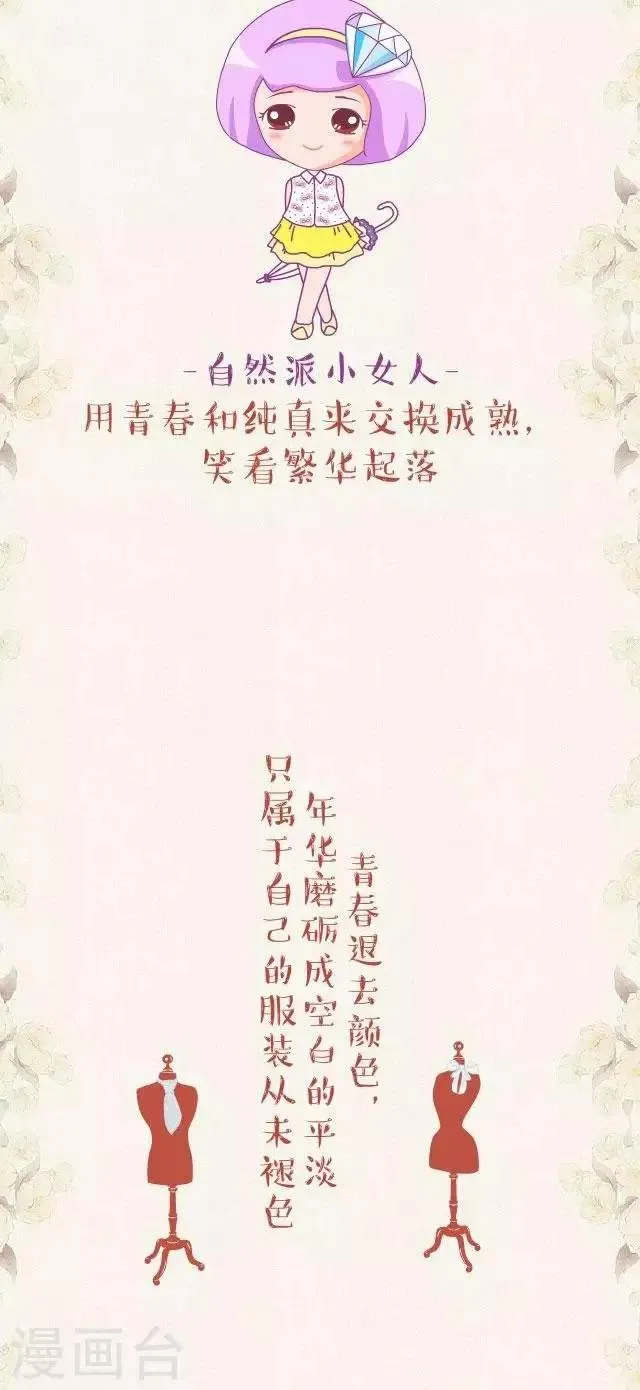 -自然派小女人-
用青春和纯真来交换成熟,
笑看繁华起落
青春退去颜色,
年华磨砺成空白的平淡
只属于自己的服装从未褪色
漫画台